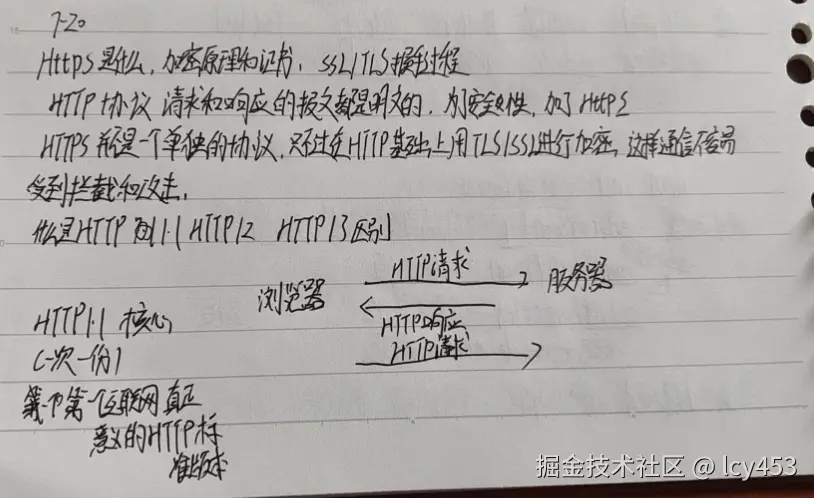 7-20
Https是什么,加密原理和证书,SSL/TLS握手过程
HTTP协议 请求和响应的报文都是明文的,为了安全性,加了Https
HTTPS并不是一个单独的协议,只不过在HTTP基础上用TLS/SSL进行加密,这样通信不容易
受到拦截和攻击,
什么是HTTP 1.1 HTTP/2 HTTP/3区别
浏览器
HTTP请求
服务器
HTTP响应
HTTP请求
HTTP1.1 核心
(一次一份)
第一个互联网真正
意义的HTTP标
准版本
掘金技术社区 @ lcy453